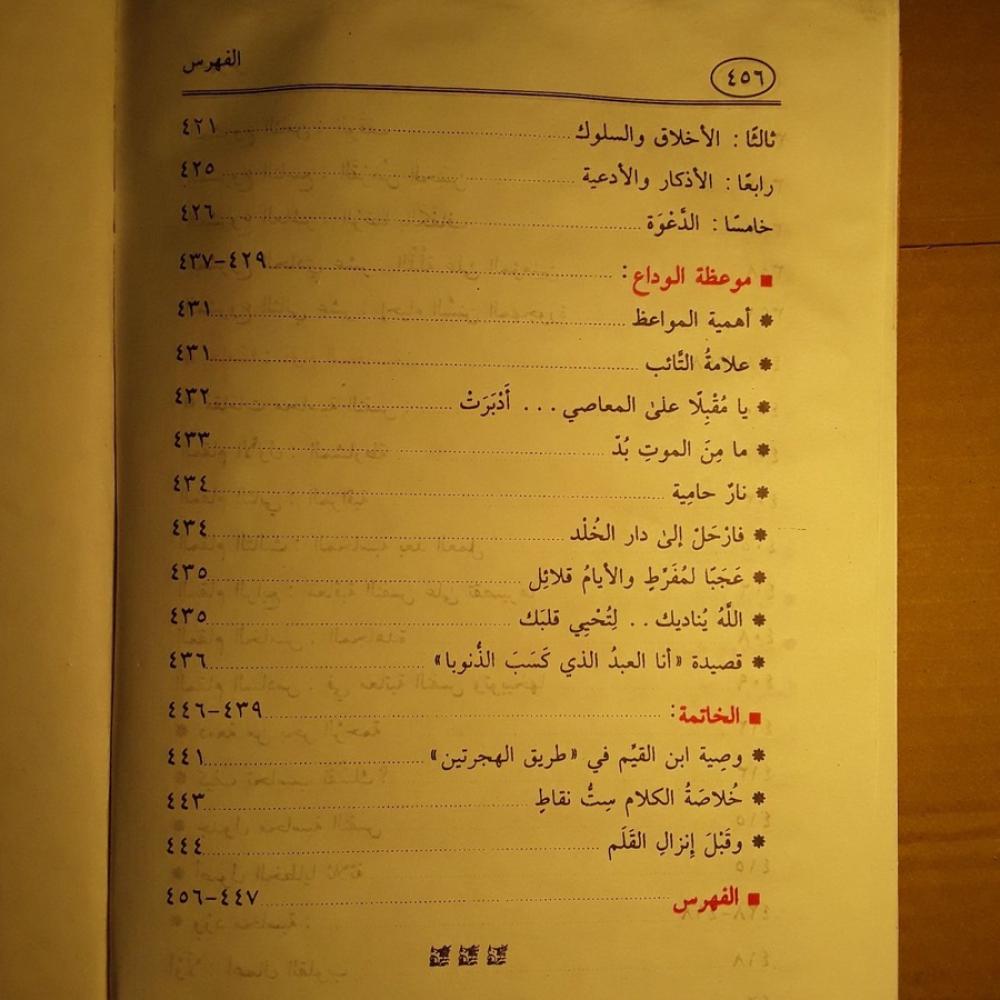 ٤٥٦ الفهرس
ثالثًا: الأخلاق والسلوك ٤٢١
رابعًا: الأذكار والأدعية ٤٢٥
خامسًا: الدَّعْوَة ٤٢٦
■ موعظة الوداع: ٤٢٩-٤٣٧
* أهمية المواعظ ٤٣١
* علامةُ التَّائب ٤٣١
* يا مُقْبِلًا علىٰ المعاصي... أَدْبَرَتْ ٤٣٢
* ما مِنَ الموتِ بُدّ ٤٣٣
* نارٌ حامِية ٤٣٤
* فارْحَلْ إلىٰ دار الخُلْد ٤٣٤
* عَجَبًا لمُفَرِّطٍ والأيامُ قلائِل ٤٣٥
* اللَّهُ يُناديك.. لِتُحْيِي قلبَك ٤٣٥
* قصيدة «أنا العبدُ الذي كَسَبَ الذُّنوبا» ٤٣٦
■ الخاتمة: ٤٣٩-٤٤٦
* وصِية ابن القيِّم في «طريق الهجرتين» ٤٤١
* خُلاصَةُ الكلام سِتُّ نقاطٍ ٤٤٣
* وقَبْلَ إنزالِ القَلَم ٤٤٤
■ الفهرس ٤٤٧-٤٥٦